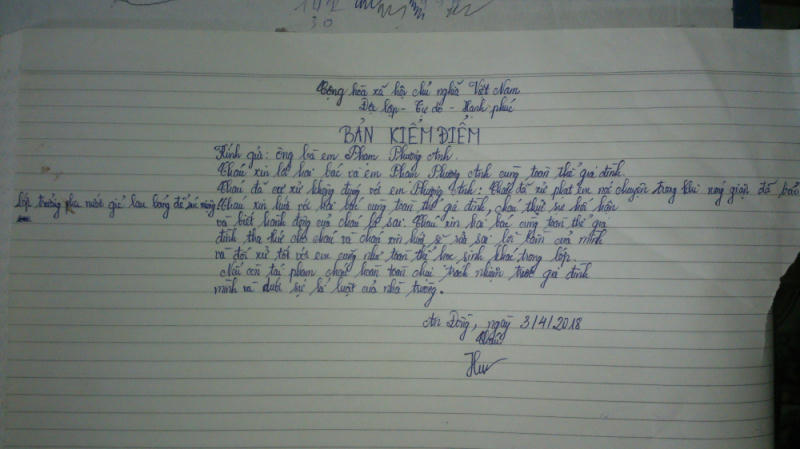 Cộng hòa xã hội chủ nghĩa Việt Nam
Độc lập - Tự do - Hạnh phúc
BẢN KIỂM ĐIỂM
Kính gửi: ông bà em Phạm Phương Anh.
Cháu xin lỗi hai bác và em Phạm Phương Anh cùng toàn thể gia đình.
Cháu đã cư xử không đúng với em Phương Anh: Cháu đã xử phạt em nói chuyện trong khi nóng giận đã bảo
lớp trưởng lấy nước giẻ lau bảng để súc miệng. Cháu xin hứa với hai bác cùng toàn thể gia đình, cháu thực sự hối hận
và biết hành động của cháu là sai. Cháu xin hai bác cùng toàn thể gia
đình tha thứ cho cháu và cháu xin hứa sẽ sửa sai lỗi lầm của mình
và đối xử tốt với em cũng như toàn thể học sinh khác trong lớp.
Nếu còn tái phạm cháu hoàn toàn chịu trách nhiệm trước gia đình
mình và dưới sự kỉ luật của nhà trường.
An Đồng, ngày 3/4/2018